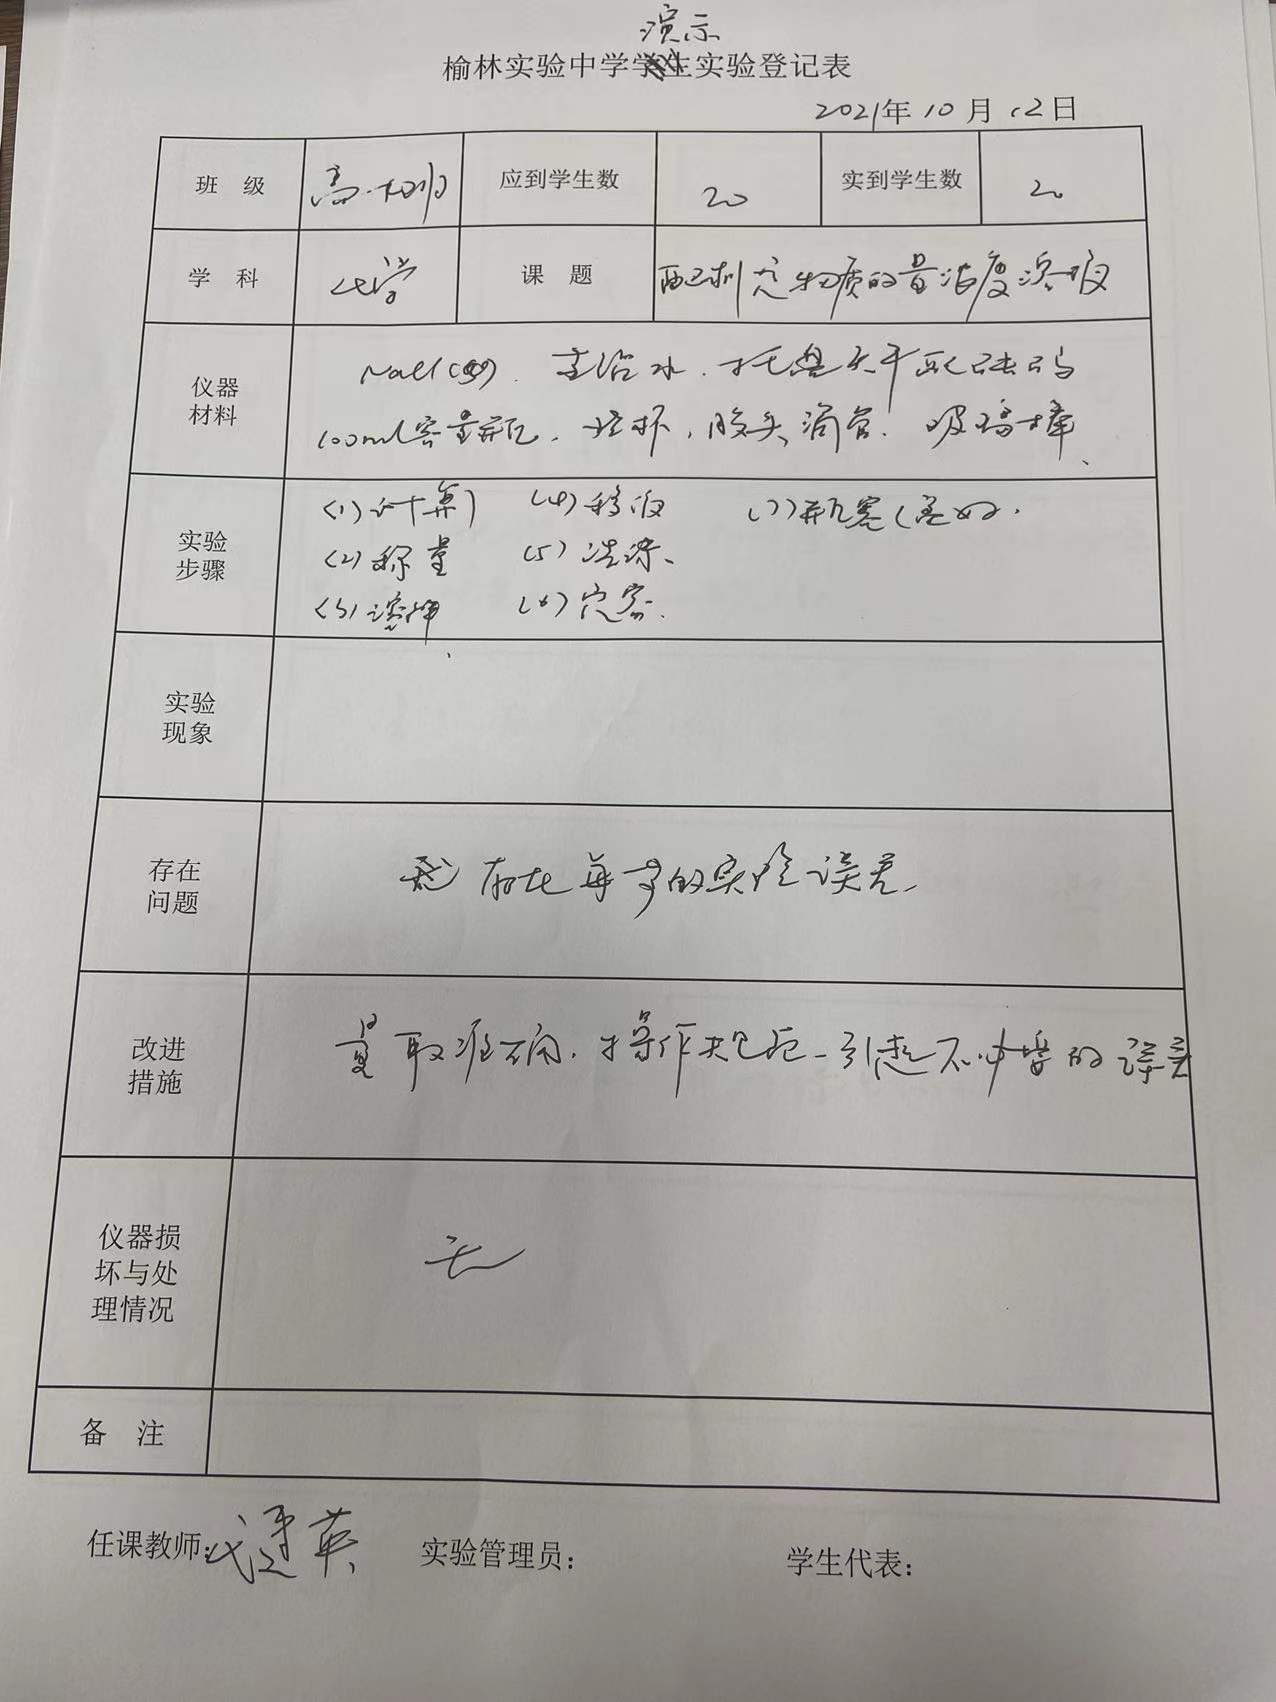 演示
榆林实验中学实验登记表
2021年10月12日
班 级
应到学生数 20 实到学生数 20
学 科 化学 课 题 配制 物质的量浓度溶液
仪器
材料
NaCl 蒸馏水、托盘天平 砝码
100ml容量瓶、烧杯、胶头滴管、玻璃棒、
实验
步骤
(1)计算 (4)移液 (7)
(2)称量 (5)洗涤、
(3)溶解 (6)定容.
实验
现象
存在
问题
存在 的实验误差、
改进
措施
量取准确、操作规范、引起不必要的误差
仪器损
坏与处
理情况
无
备 注
任课教师: 实验管理员: 学生代表: